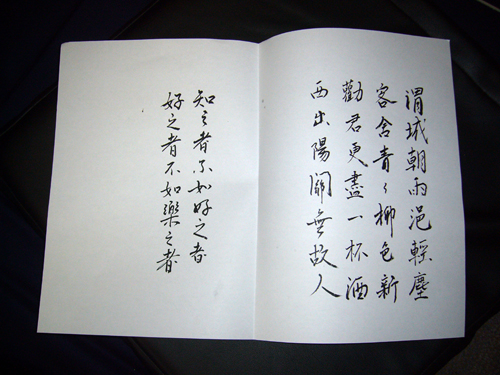 渭城朝雨浥輕塵
客舍青々柳色新
勸君更盡一杯酒
西出陽關無故人
知之者不如好之者
好之者不如樂之者